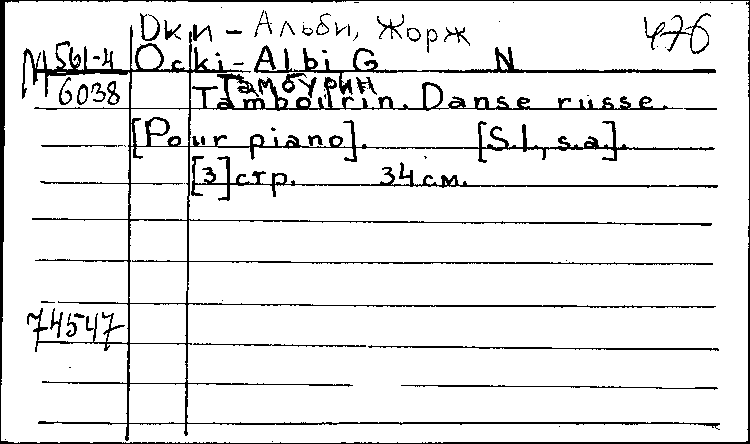 Оки - Альби, Жорж 476
M 561-4 Ocki-Albi G N
6038 Тамбурин
Tambourin. Danse russe.
[Pour piano]. [S.l., s.a].
[3] стр. 34 см.
74547